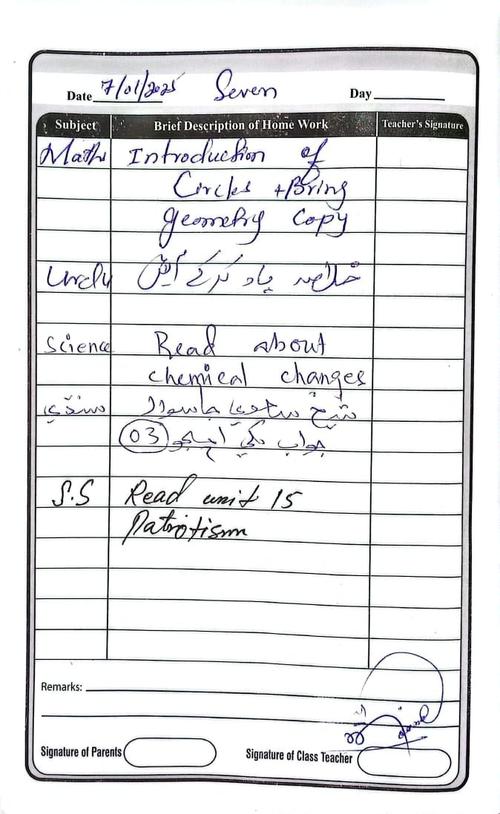 Date 7/01/2025 Seven Day
Subject Brief Description of Home Work Teacher's Signature
Maths Introduction of
Circles + Bring
geometry copy
Urdu خلاصہ یاد کرکے آئیں
Science Read about
chemical changes
سنڌي شيخ سعدي جا سوال
جواب لکي اچجو 03
S.S Read unit 15
Patriotism
Remarks:
Signature of Parents Signature of Class Teacher